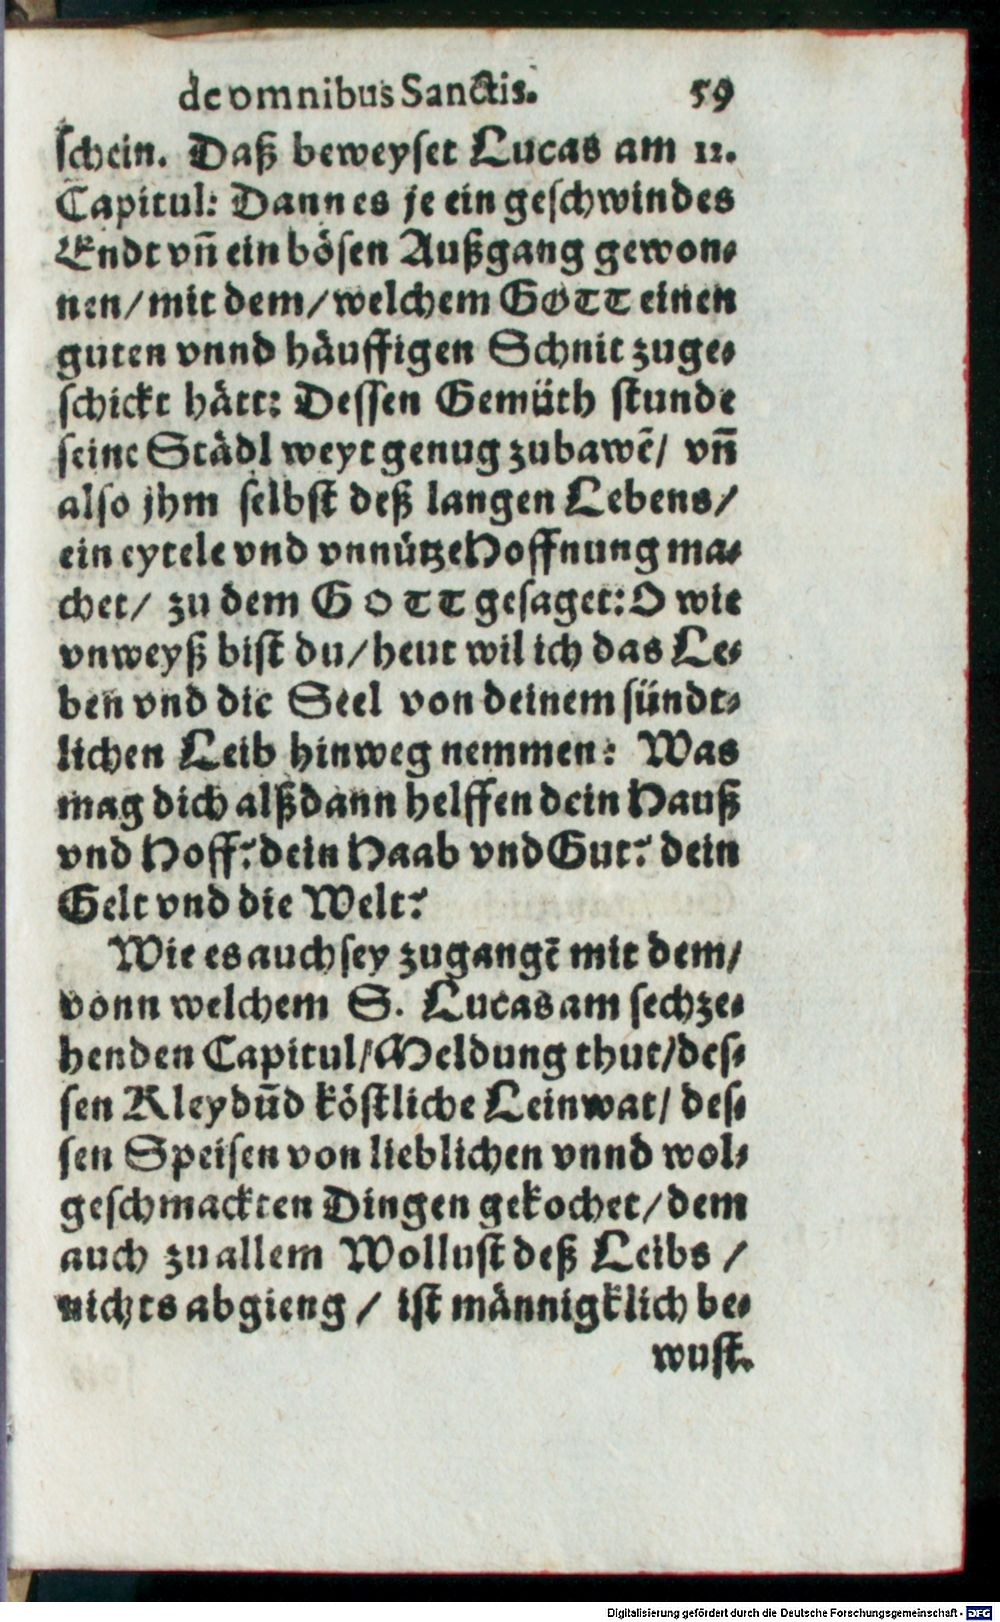 de omnibus Sanctis. 59
schein. Daß beweyset Lucas am 12.
Capitul: Dann es je ein geschwindes
Endt vn̄ ein bösen Außgang gewon⸗
nen/ mit dem/ welchem GOTT einen
guten vnnd häuffigen Schnit zuge⸗
schickt hätt: Dessen Gemüth stunde
seine Städl weyt genug zubawē/ vn̄
also jhm selbst deß langen Lebens/
ein eytele vnd vnnütze Hoffnung ma⸗
chet/ zu dem GOTT gesaget: O wie
vnweyß bist du/ heut wil ich das Le⸗
ben vnd die Seel von deinem sündt⸗
lichen Leib hinweg nemmen: Was
mag dich alßdann helffen dein Hauß
vnd Hoff? dein Haab vnd Gut? dein
Gelt vnd die Welt?
Wie es auch sey zugangē mit dem/
vonn welchem S. Lucas am sechze⸗
henden Capitul/ Meldung thut/ des⸗
sen Kleydūd köstliche Leinwat/ des⸗
sen Speisen von lieblichen vnnd wol⸗
geschmackten Dingen gekochet/ dem
auch zu allem Wollust deß Leibs /
nichts abgieng / ist männigklich be⸗
wust.
Digitalisierung gefördert durch die Deutsche Forschungsgemeinschaft - DFG